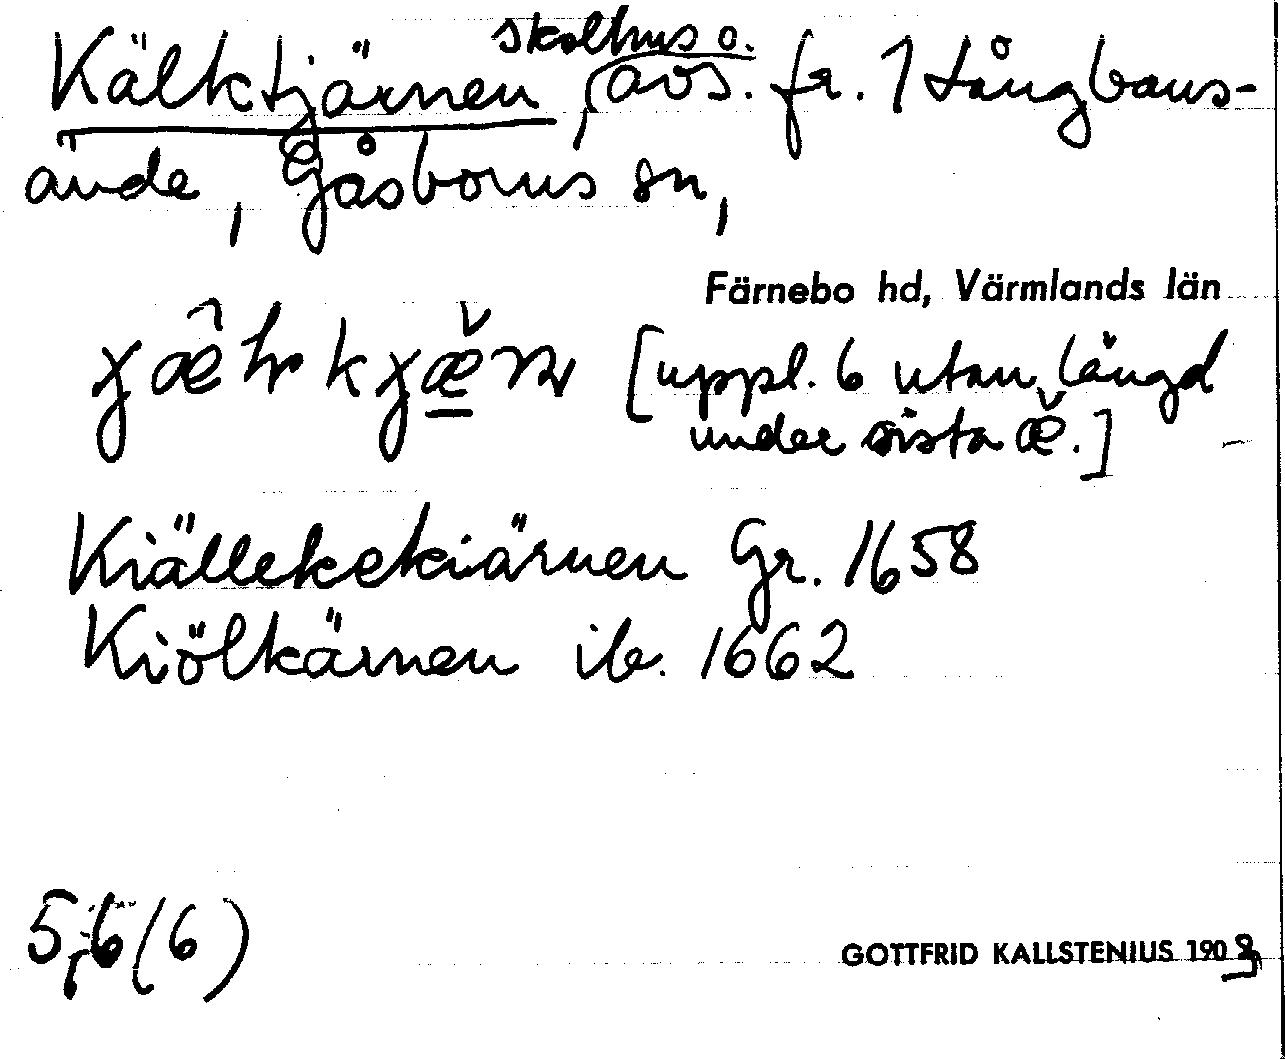 Kälktjärnen, skolhus o. avs. fr. 1 Långbans-
ände, Gåsborns sn,
Färnebo hd, Värmlands län
[uppl. 6 utan längd
under sista æ̌.]
Kiällekekiärnen Gr. 1658
Kiölkärnen ib. 1662
5, 6 (6)
GOTTFRID KALLSTENIUS 190